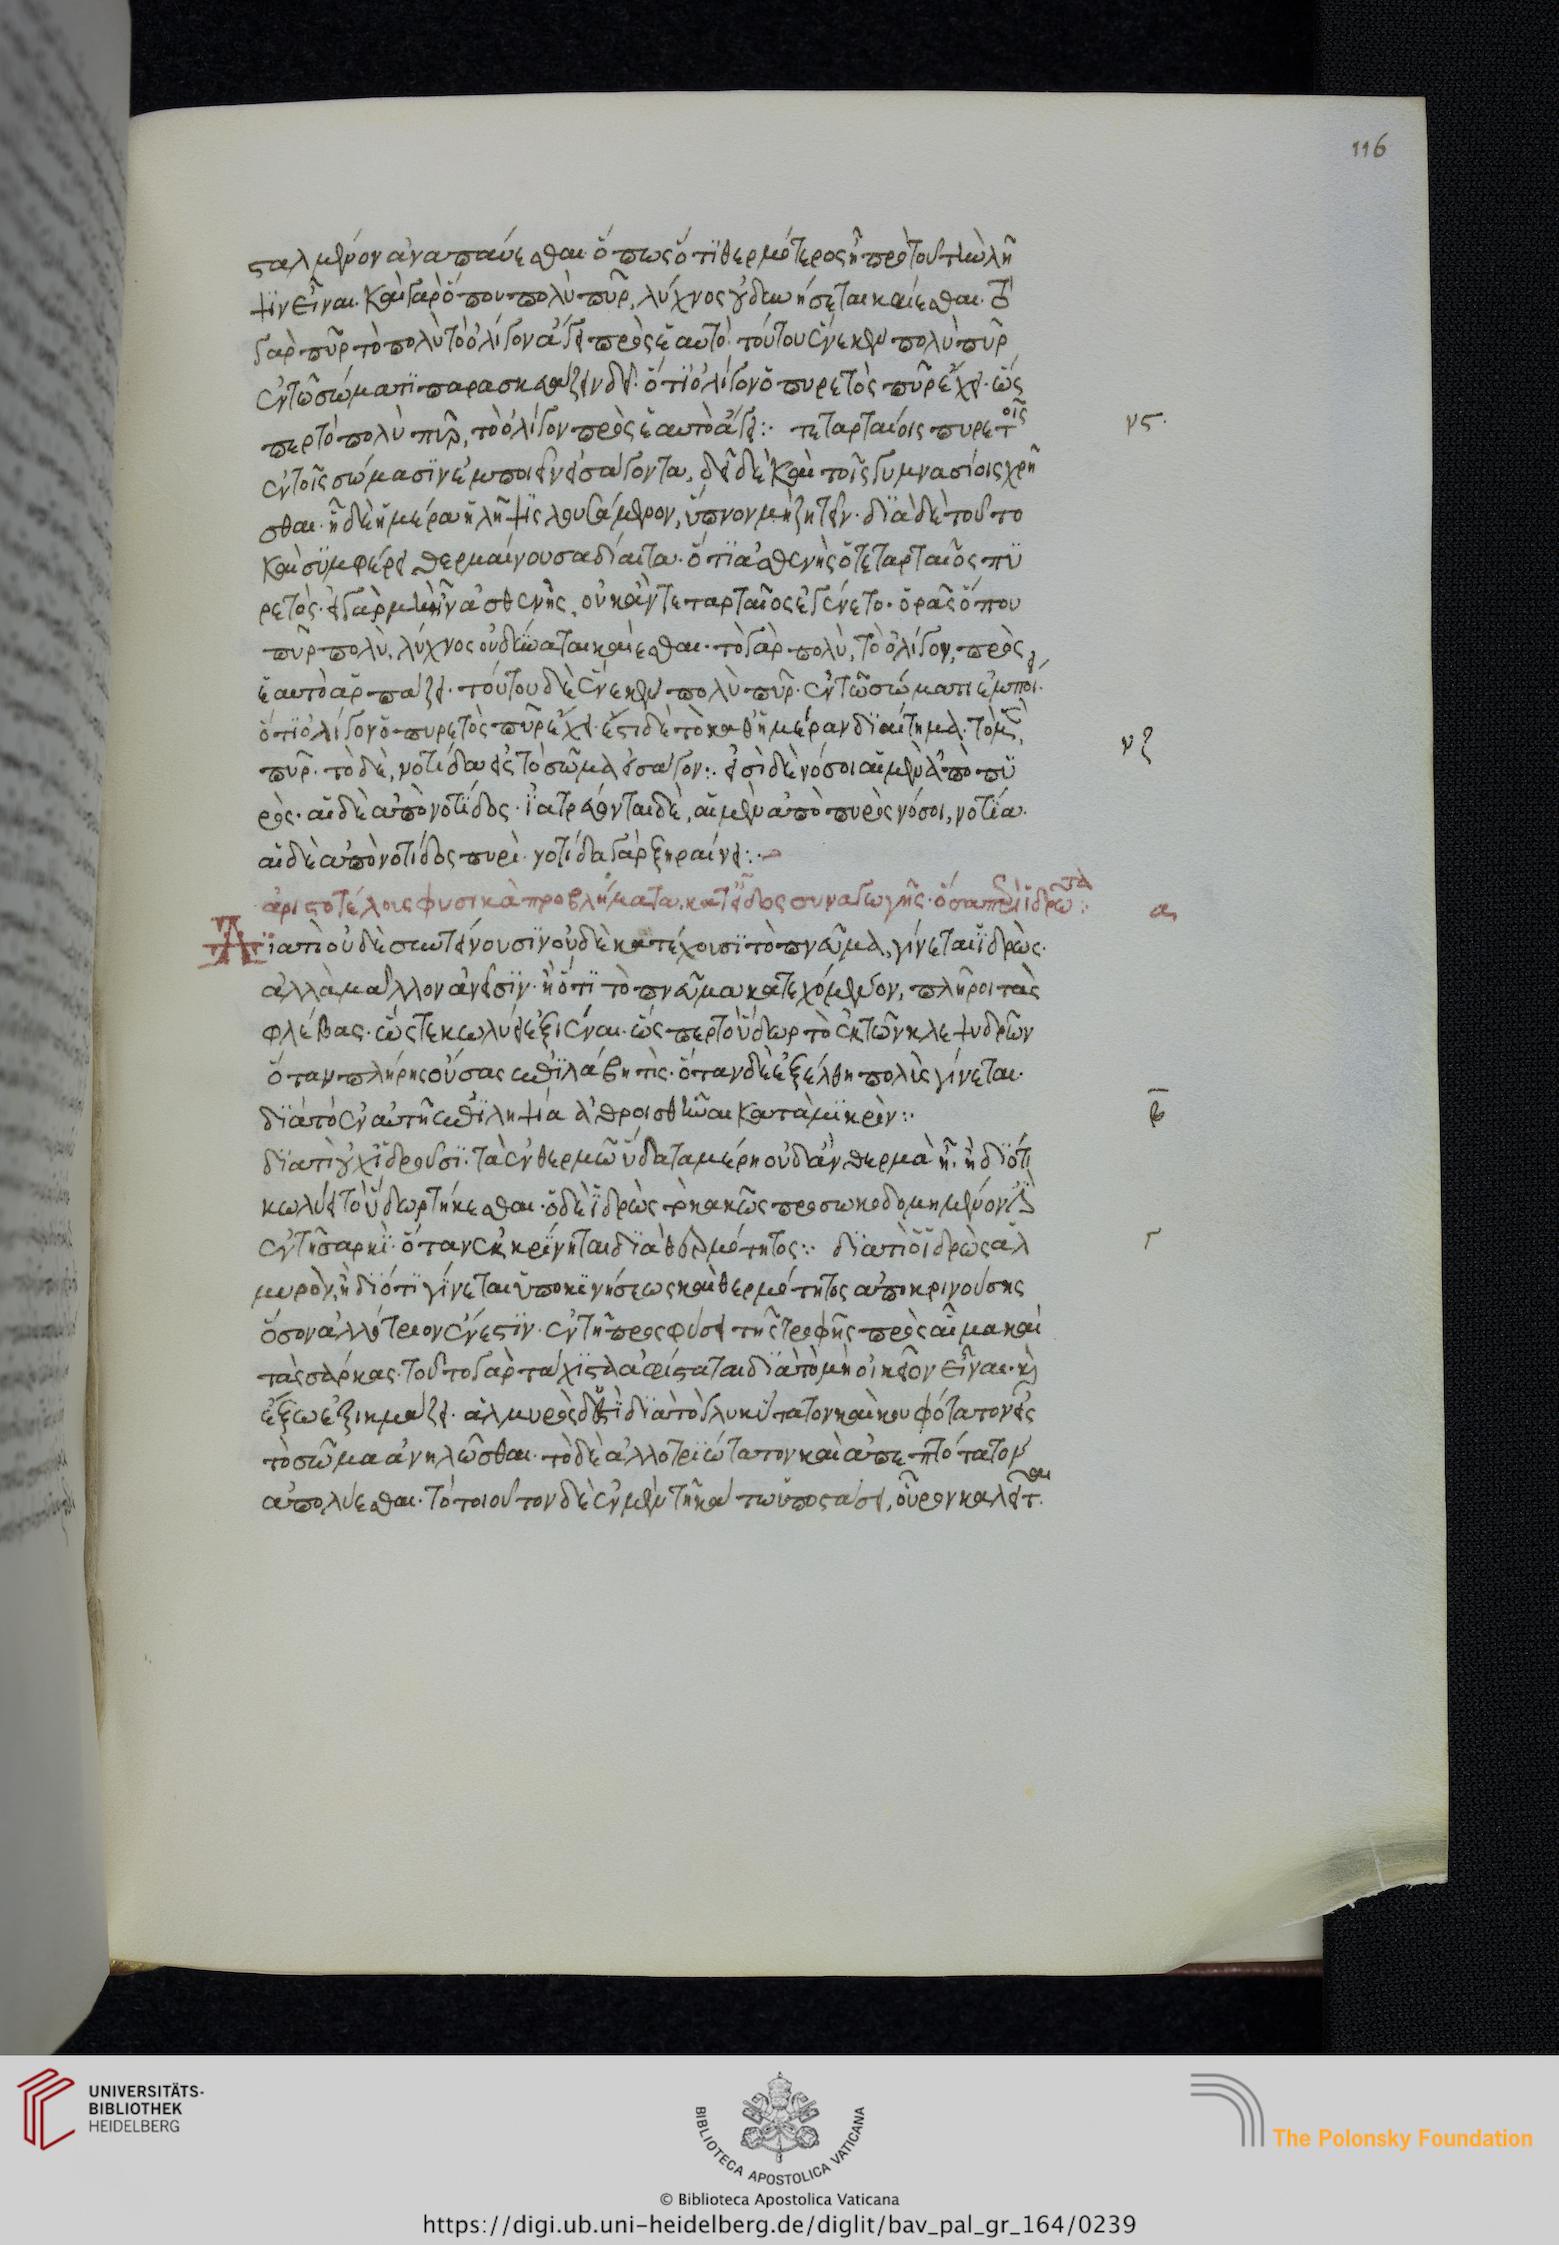 116
σταλμένον ἀναπαύεσθαι. ὅπως ὅτι θερμότερος ᾖ πρὸ τοῦ τὴν λῆ
ψιν εἶναι. καὶ γὰρ ὅπου πολὺ πῦρ, λύχνος οὐ δυνήσεται καίεσθαι. τὸ
γὰρ πῦρ τὸ πολὺ τὸ ὀλίγον ἄγει πρὸς ἑαυτό. τούτου ἕνεκεν πολὺ πῦρ
ἐν τῷ σώματι παρασκευάζειν δεῖ. ὅτι ὀλίγον ὁ πυρετὸς πῦρ ἔχει. ὥς
περ τὸ πολὺ πῦρ, τὸ ὀλίγον πρὸς ἑαυτὸ ἄγει: τεταρταίοις πυρετοῖς
νϛ.
ἐν τοῖς σώμασιν ἐμποιεῖν εἰσάγοντα. δεῖ δὲ καὶ τοῖς γυμνασίοις χρῆ
σθαι. ᾗ δὲ ἡμέρα ἡ λῆψις λουσάμενον, ὕπνον μὴ ζητεῖν. διὰ δὲ τοῦτο
καὶ συμφέρει θερμαίνουσα δίαιτα. ὅτι ἀσθενὴς ὁ τεταρταῖος πυ
ρετός. εἰ γὰρ μὴ ἦν ἀσθενής, οὐκ ἂν τεταρταῖος ἐγένετο. ὁρᾶς ὅπου
πῦρ πολύ, λύχνος οὐ δύναται καίεσθαι. τὸ γὰρ πολύ, τὸ ὀλίγον, πρὸς
ἑαυτὸ ἁρπάζει. τούτου δὲ ἕνεκεν πολὺ πῦρ. ἐν τῷ σώματι ἐμποιεῖ.
ὅτι ὀλίγον ὁ πυρετὸς πῦρ ἔχει. ἔστι δὲ τὸ καθ' ἡμέραν διαίτημα. τὸ μὲν,
νζ
πῦρ. τὸ δὲ, νοτίδα εἰς τὸ σῶμα εἰσάγον: εἰσὶ δὲ νόσοι αἱ μὲν ἀπὸ πυ
ρός. αἱ δὲ ἀπὸ νοτίδος. ἰατρεύονται δὲ, αἱ μὲν ἀπὸ πυρὸς νόσοι, νοτία.
αἱ δὲ ἀπὸ νοτίδος πυρί. νοτίδα γὰρ ξηραίνει:
ἀριστοτέλους φυσικὰ προβλήματα. κατ' εἶδος συναγωγῆς. ὅσα περὶ ἱδρῶτα:
α
Διατὶ οὐδὲ συντείνουσιν οὐδὲ κατέχουσι τὸ πνεῦμα, γίνεται ἱδρώς.
ἀλλὰ μᾶλλον ἀνεῖσιν. ἢ ὅτι τὸ πνεῦμα κατεχόμενον, πληροῖ τὰς
φλέβας. ὥστε κωλύει ἐξιέναι. ὥσπερ τὸ ὕδωρ τὸ ἐκ τῶν κλεψυδρῶν
ὅταν πλήρης οὔσας ἐπιλάβη τίς. ὅταν δὲ ἐξέλθη πολὺς γίνεται.
διὰ τὸ ἐν αὐτῇ ἐπιληψία ἀθροισθῆναι κατὰ μικρόν:
β
διατὶ οὐχ ἱδροῦσι. τὰ ἐν θερμῷ ὕδατα μέρη οὐδ' ἂν θερμὰ ᾖ. ἢ διότι
κωλύει τὸ ὕδωρ τήκεσθαι. ὁ δὲ ἱδρὼς τὸ κακῶς προσωκοδομημένον ᾖ
ἐν τῇ σαρκὶ. ὅταν ἐκκρίνηται διὰ θερμότητος: διατὶ ὁ ἱδρὼς ἁλ
γ
μυρὸν, ἢ διότι γίνεται ὑπὸ κινήσεως καὶ θερμότητος ἀποκρινούσης
ὅσον ἀλλότριον ἔνεστιν. ἐν τῇ προσφύσει τῆς τροφῆς πρὸς αἷμα καὶ
τὰς σάρκας. τοῦτο γὰρ τάχιστα ἀφίσταται διὰ τὸ μὴ οἰκεῖον εἶναι. καὶ
ἔξω ἐξικμάζει. ἁλμυρὸς δ' ἐστὶ διὰ τὸ γλυκύτατον καὶ κουφότατον εἰς
τὸ σῶμα ἀνηλῶσθαι. τὸ δὲ ἀλλοτριώτατον καὶ ἀπεπτότατον
ἀπολύεσθαι. τὸ τοιοῦτον δὲ ἐν μὲν τῇ κάτω ὑποστάσει, οὖρον καλεῖται.
UNIVERSITÄTS-
BIBLIOTHEK
HEIDELBERG
BIBLIOTECA APOSTOLICA VATICANA
The Polonsky Foundation
© Biblioteca Apostolica Vaticana
https://digi.ub.uni-heidelberg.de/diglit/bav_pal_gr_164/0239